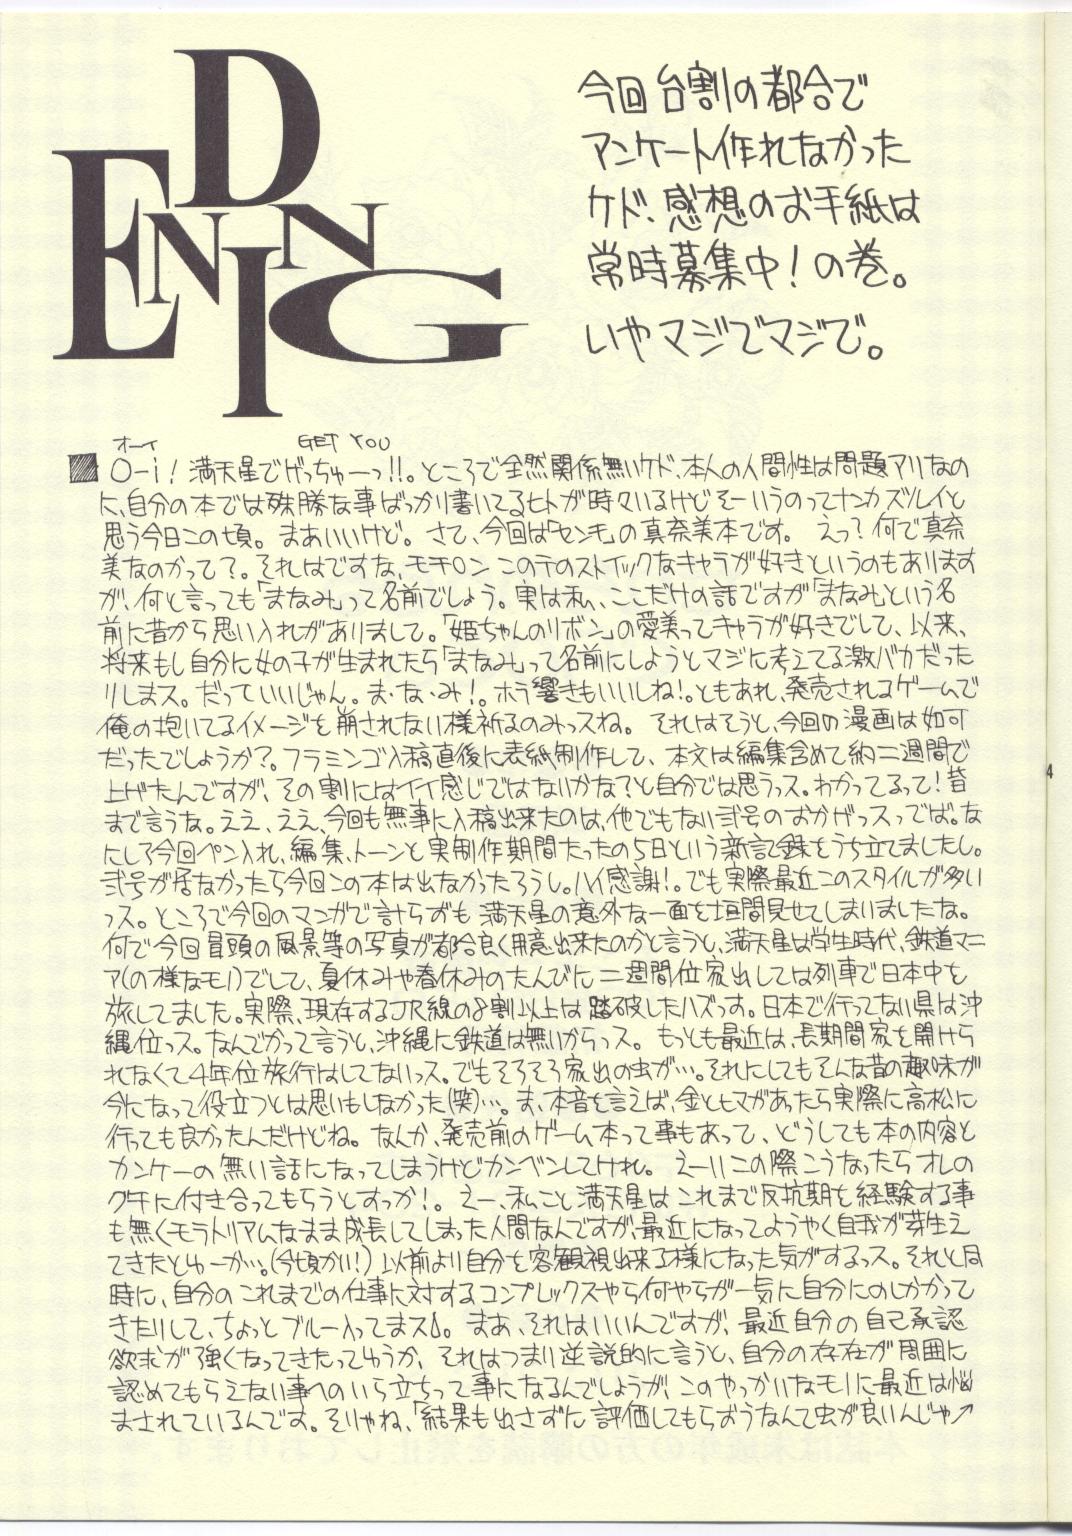 ENDING
今回台割の都合で
アンケート作れなかった
ケド、感想のお手紙は
常時募集中!の巻。
いやマジでマジで。
オーイ GET YOU
O-i! 満天星でげっちゅーっ!!。ところで全然関係無いケド、本人の人間性は問題アリなの
に、自分の本では殊勝な事ばっかり書いてるヒトが時々いるけどそーいうのってナンカズルイと
思う今日この頃。まあいいけど。さて、今回は「センチ」の真奈美本です。 えっ?何で真奈
美なのかって?。それはですな、モチロン このテのストイックなキャラが好きというのもあります
が、何と言っても「まなみ」って名前でしょう。実は私、ここだけの話ですが「まなみ」という名
前に昔から思い入れがありまして。「姫ちゃんのリボン」の愛美ってキャラが好きでして、以来、
将来もし自分に女の子が生まれたら「まなみ」って名前にしようとマジに考えてる激バカだった
りしまス。だっていいじゃん。ま・な・み!。ホラ響きもいいしね!。ともあれ、発売されるゲームで
俺の抱いてるイメージを崩されない様祈るのみっスね。 それはそうと、今回の漫画は如何
だったでしょうか?。フラミンゴ入稿直後に表紙制作して、本文は編集含めて約二週間で
上げたんですが、その割にはイイ感じではないかな?と自分では思うっス。わかってるって!皆
まで言うな。ええ、ええ、今回も無事に入稿出来たのは、他でもない弐号のおかげっスってば。な
にしろ今回ペン入れ、編集、トーンと実制作期間たったの5日という新記録をうち立てましたし。
弐号が居なかったら今回この本は出なかったろうし。ハイ感謝!。でも実際最近このスタイルが多い
っス。ところで今回のマンガで計らずも 満天星の意外な一面を垣間見せてしまいましたな。
何で今回冒頭の風景等の写真が都合良く用意出来たのかと言うと、満天星は学生時代、鉄道マニ
ア(の様なモノ)でして、夏休みや春休みのたんびに二週間位家出しては列車で日本中を
旅してました。実際、現存するJR線の8割以上は踏破したハズっす。日本で行ってない県は沖
縄位っス。なんでかって言うと、沖縄に鉄道は無いからっス。 もっとも最近は、長期間家を開けら
れなくて4年位旅行はしてないっス。でもそろそろ家出の虫が…。それにしてもそんな昔の趣味が
今になって役立つとは思いもしなかった(笑)…。ま、本音を言えば、金とヒマがあったら実際に高松に
行っても良かったんだけどね。なんか、発売前のゲーム本って事もあって、どうしても本の内容と
カンケーの無い話になってしまうけどカンベンしてけれ。 えーいこの際こうなったらオレの
グチに付き合ってもらうとすっか!。えー、私こと満天星はこれまで反抗期を経験する事
も無くモラトリアムなまま成長してしまった人間なんですが、最近になってようやく自我が芽生え
てきたとゆーか…。(今頃かい!)以前より自分を客観視出来る様になった気がするっス。それと同
時に、自分のこれまでの仕事に対するコンプレックスやら何やらが一気に自分にのしかかって
きたりして、ちょっとブルー入ってまスΔ。まあ、それはいいんですが、最近自分の自己承認
欲求が強くなってきたってゆうか、それはつまり逆説的に言うと、自分の存在が周囲に
認めてもらえない事へのいら立ちって事になるんでしょうが、このやっかいなモノに最近は悩
まされているんです。そりゃね、「結果も出さずに評価してもらおうなんて虫が良いんじゃ↗
4